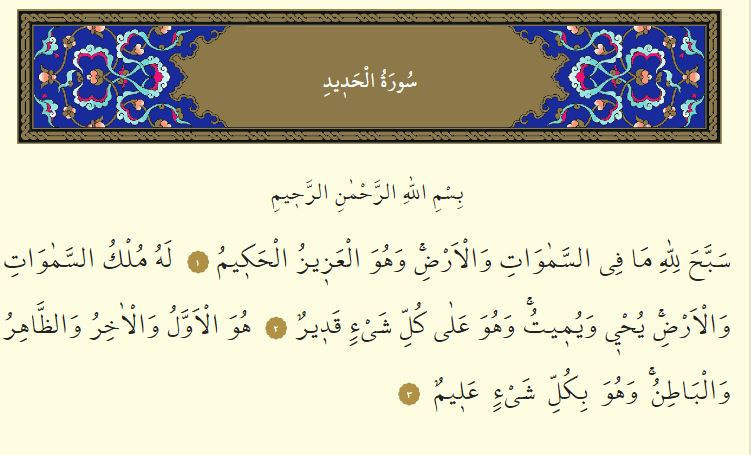 سُورَةُ الْحَد۪يدِ
بِسْمِ اللهِ الرَّحْمٰنِ الرَّح۪يمِ
سَبَّحَ لِلّٰهِ مَا فِى السَّمٰوَاتِ وَالْاَرْضِۚ وَهُوَ الْعَز۪يزُ الْحَك۪يمُ ١ لَهُ مُلْكُ السَّمٰوَاتِ
وَالْاَرْضِۚ يُحْي۪ وَيُم۪يتُۚ وَهُوَ عَلٰى كُلِّ شَىْءٍ قَد۪يرٌ ٢ هُوَ الْاَوَّلُ وَالْاٰخِرُ وَالظَّاهِرُ
وَالْبَاطِنُۚ وَهُوَ بِكُلِّ شَىْءٍ عَل۪يمٌ ٣